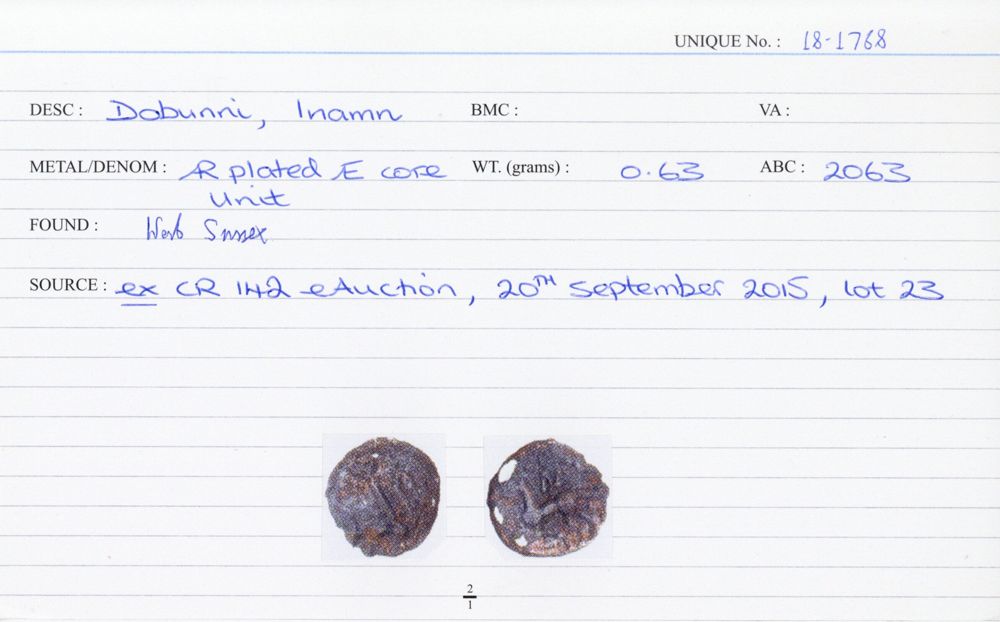 UNIQUE No. : 18-1768
DESC : Dobunni, Inamn BMC : VA :
METAL/DENOM : AR plated Æ core WT. (grams) : 0.63 ABC : 2063
unit
FOUND : West Sussex
SOURCE : ex CR 142 eAuction, 20TH September 2015, lot 23
2
1